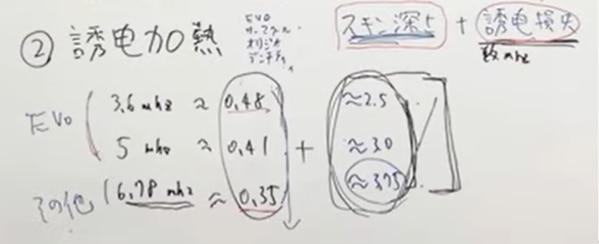 ② 誘電加熱
EVO
サーマクール
オリジオ
デンナディ
スキン深さ + 誘電損失
数mhz
EVO
3,6 mhz ≈ 0,48 + ≈2.5
5 mhz ≈ 0,41 ≈30
その他 6,78 mhz ≈ 0,35 ≈375